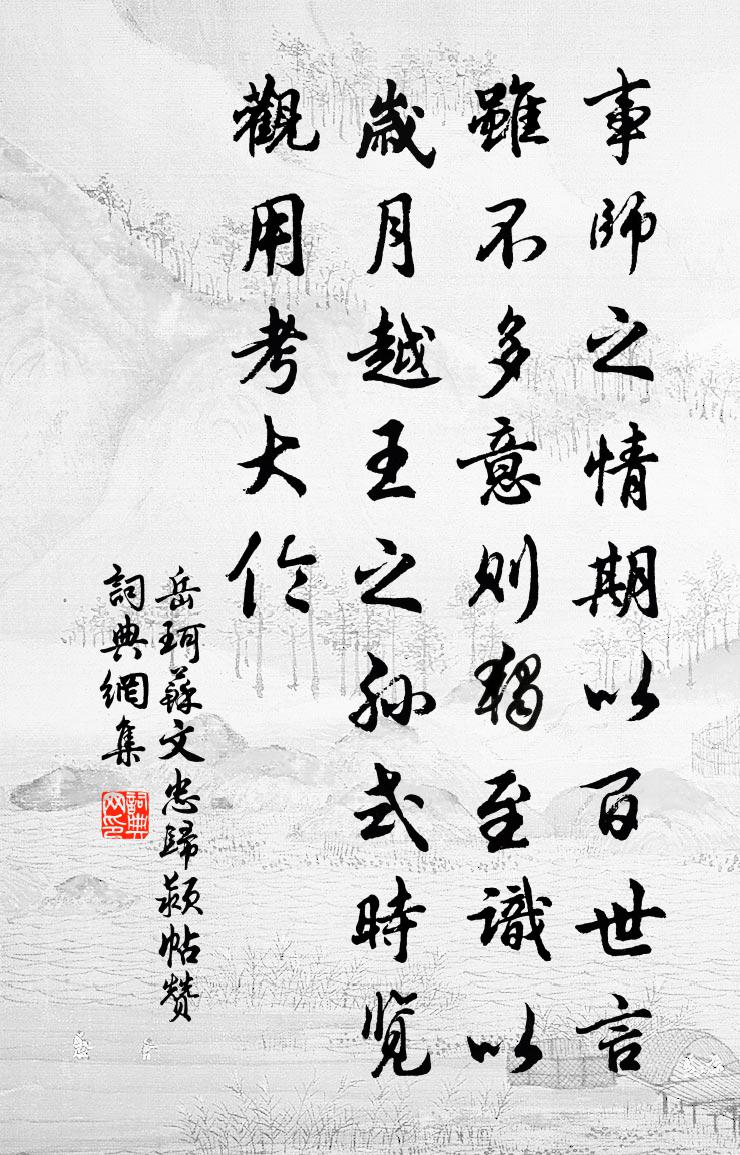 事師之情期以百世言
雖不多意則獨至識以
歲月越王之孫式時覽
觀用考大倫
岳珂蘇文忠歸潁帖贊
詞典網集
詞典网印